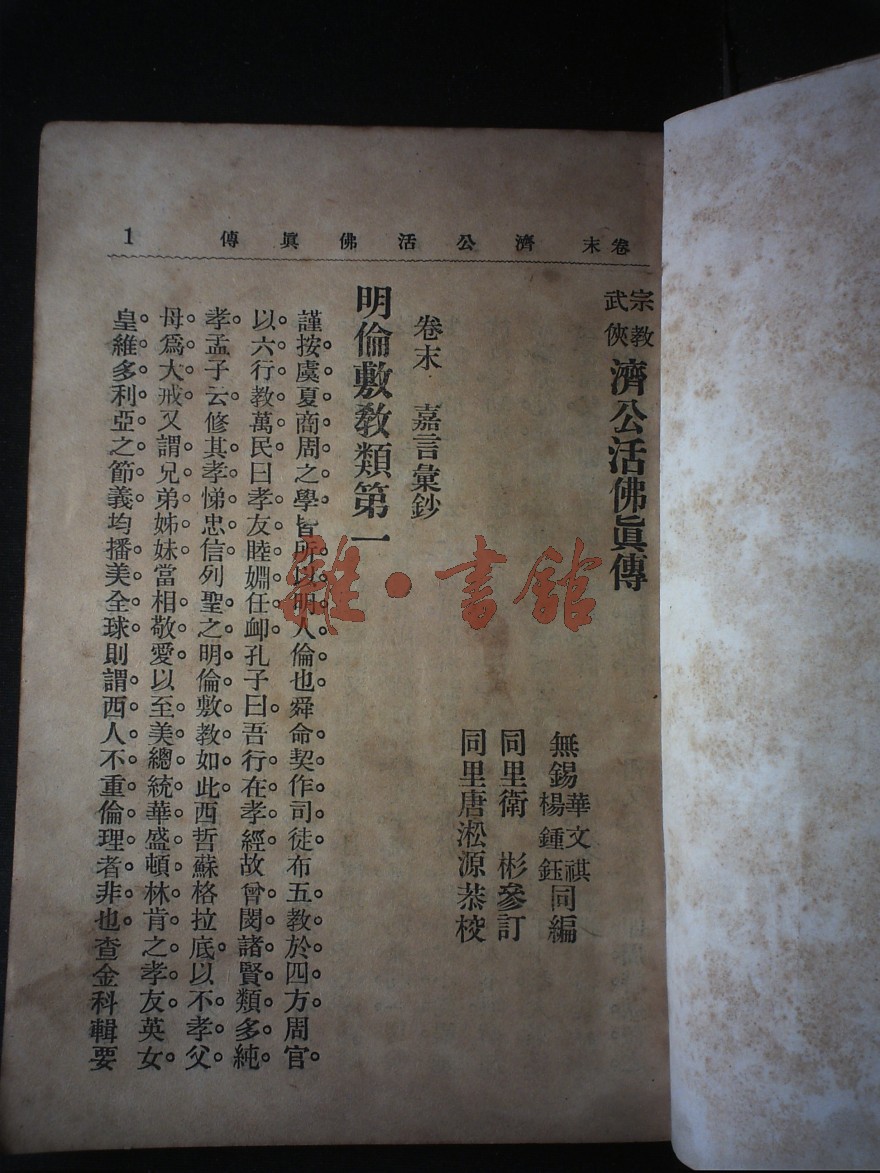 卷末 濟公活佛眞傳 1
宗教武俠 濟公活佛眞傳
無錫華文祺楊鍾鈺同編
同里衛 彬參訂
同里唐淞源恭校
卷末 嘉言彙鈔
明倫敷敎類第一
謹按虞夏商周之學皆所以明人倫也舜命契作司徒布五教於四方周官
以六行教萬民曰孝友睦婣任卹孔子曰吾行在孝經故曾閔諸賢類多純
孝孟子云修其孝悌忠信列聖之明倫敷教如此西哲蘇格拉底以不孝父
母爲大戒又謂兄弟姊妹當相敬愛以至美總統華盛頓林肯之孝友英女
皇維多利亞之節義均播美全球則謂西人不重倫理者非也查金科輯要
雜·書舘